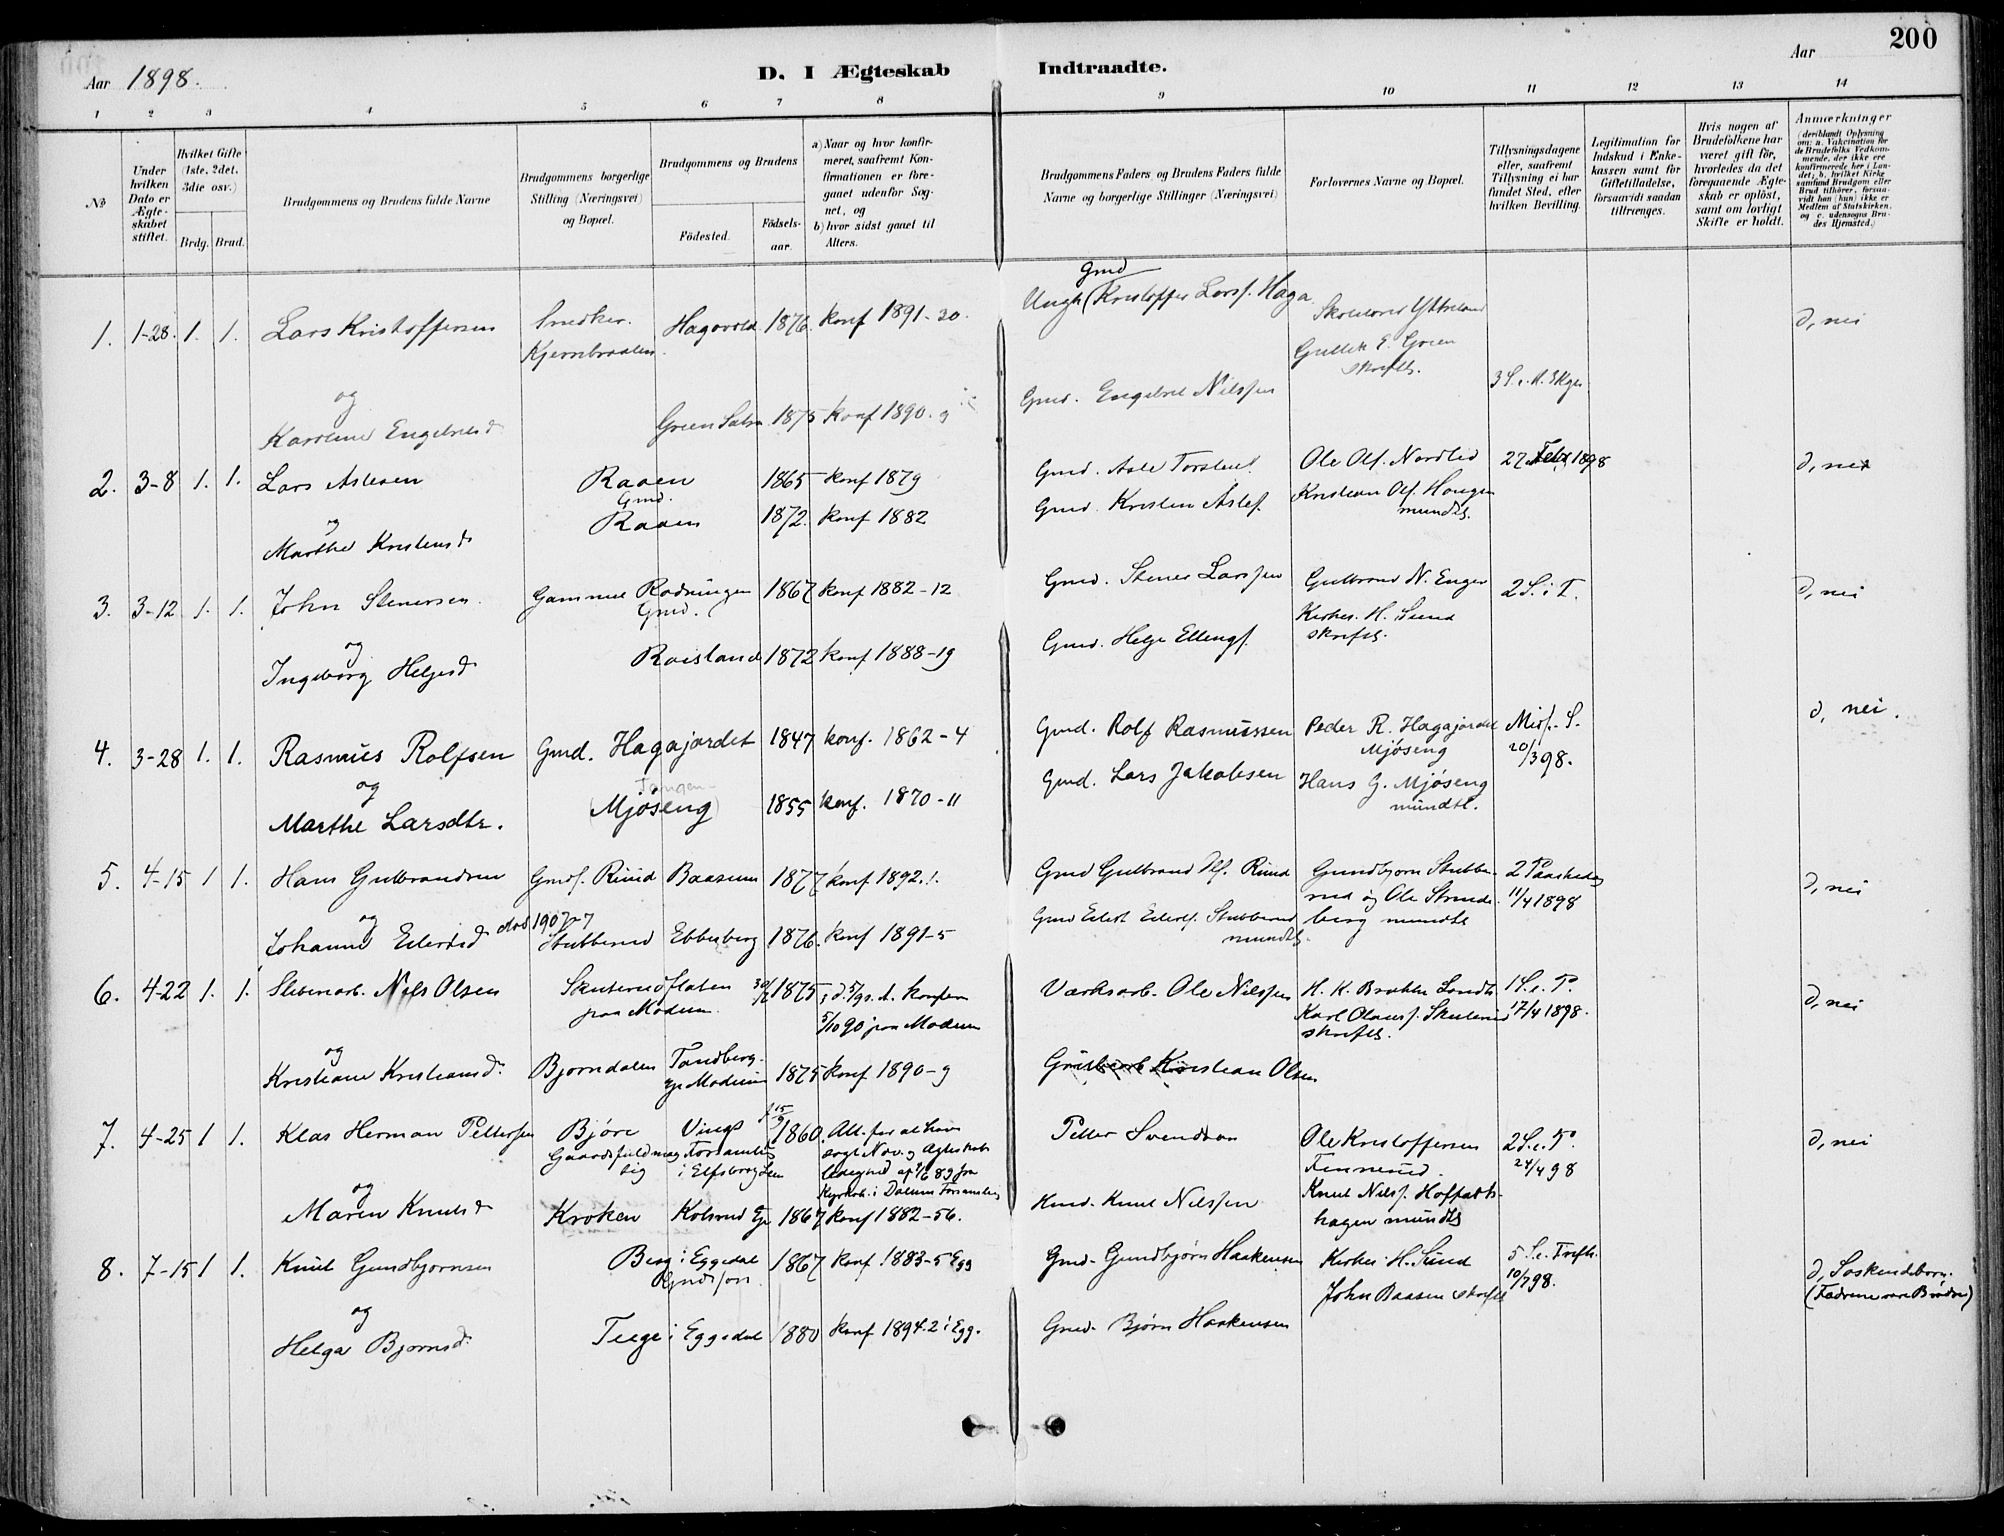 Aar 1898.
D. I Ægteskab Indtraadte.
Aar
200
1 2 3 4 5 6 7 8 9 10 11 12 13 14
No
Under hvilken Dato er Ægteskabet stiftet.
Hvilket Gifte (1ste, 2det, 3die osv.)
Brdg. Brud.
Brudgommens og Brudens fulde Navne
Brudgommens borgerlige Stilling (Næringsvei) og Bopæl.
Brudgommens og Brudens
Fødested.
Fødselsaar.
a) Naar og hvor konfirmeret, saafremt Konfirmationen er foregaaet udenfor Sognet, og
b) hvor sidst gaaet til Alters.
Brudgommens Faders og Brudens Faders fulde Navne og borgerlige Stillinger (Næringsvei)
Forlovernes Navne og Bopæl.
Tillysningsdagene eller, saafremt Tillysning ei har fundet Sted, efter hvilken Bevilling.
Legitimation for Indskud i Enkekassen samt for Giftetilladelse, forsaavidt saadan tiltrænges.
Hvis nogen af Brudefolkene har været gift før, hvorledes da det foregaaende Ægteskab er opløst, samt om lovligt Skifte er holdt.
Anmærkninger
(deriblandt Oplysning om: a. Vaccination for de Brudefolks Vedkommende, der ikke ere konfirmerede her i Landet; b. hvilket Kirkesamfund Brudgom eller Brud tilhører, forsaavidt han (hun) ikke er Medlem af Statskirken, og c. udensogns Brudes Hjemsted.)
1. 1-28. 1. 1. Lars Kristoffersen Snedker. Hagavold. 1876. konf 1891-30. Gmd Kristoffer Larsf. Haga
Gullik E. Green
skriftl.
3 S. e. H. 3 Kger
d, nei
og
Karoline Engebretsd. 1875 konf 1890-9 Gmd. Engebret Nilssen
2. 3-8 1. 1. Lars Aslesen Raaen 1865 konf 1879 Gmd. Asle Torstens. Ole Olf. Nordlid 27 Febr 1898 d, nei
Gmd.
og Raaen 1872. konf 1882 Gmd. Kristen Aslef. Kristian Olf. Haugen
mundtl.
Marthe Kristensd.
3. 3-12 1. 1. John Stenersen. Gammel Rodningen 1867 konf 1882-12 Gmd. Stener Larssen Gulbrand N. Enger 2 S. i F. d, nei
Gmd. Kirkes. H. Sund
skriftl.
og
Ingeborg Helgesd. Roisland 1872 konf 1888-19 Gmd. Helge Ellingf.
4. 3-28 1. 1. Rasmus Rolfsen Gmd. Hagajordet 1847 konf. 1862-4 Gmd. Rolf Rasmussen Peder R. Hagajordet Midf.-S. d, nei.
Mjøseng 20/3 98.
og
Marthe Larsdtr. (Mjøseng) 1855 konf. 1870-11 Gmd. Lars Jakobsen Hans G. Mjøseng
mundtl.
5. 4-15 1 1. Hans Gulbrandsen Gmdf. Ruud Baasum 1877 konf 1892.1. Gmd Gulbrand Olf. Ruud Gundbjørn Stubberud og Ole Strandeberg mundtl 2 Paaskedag 11/4 1898 d, nei
og død 1907-7
Johanne Eilertsd. Stubberud Ebbesberg 1876. konf 1891-5 Gmd Eilert Eilertf. Stubberud
mundtl.
6. 4-22 1. 1. Sliberiarb. Nils Olsen Skuterudflaten
paa Modum 30/7 1875 5/10 90 paa Modum Værksarb. Ole Nilssen H. K. Brække
Karl Olausf. Skuterud
skriftl. 1 S. e. P.
17/4 1898. d, nei
og
Kristiane Kristiansd. Bjørndalen Tandberg.
Modum 1875 konf 1890-9 Kristian Olsen
7. 4-25 1 1. Klas Herman Pettersen Bjøre
Gaardsfuldmægtig Vings
Forsamling
i Elfsborg Len f 15/9 1860. Att. for at have Petter Svendson Ole Kristoffersen
Finnerud. 2 S. e. P.
24/4 98 d, nei
af 1/6 89 fra
Kyrkob. i Dalums Forsamling
og
Maren Knutsd. Kroken Kolsrud Eje 1867 konf 1882-56. Hmd. Knut Nilssen Knut Nilsf. Hoffarthhagen mundtl
8. 7-15 1 1. Knut Gundbjørnsen Berg i Eggedal
Gmdsøn. 1867 konf 1883-5 Egg Gmd. Gundbjørn Haakensen Kirkes. H. Sund 5 S. e. Trefh.
10/7 98. d, Søskendebørn.
(Fædrene vare Brødre)
John Baasen skriftl
og
Helga Bjørnsd. Teege i Eggedal 1880 konf 1894.2 i Egg. Gmd. Bjørn Haakensen